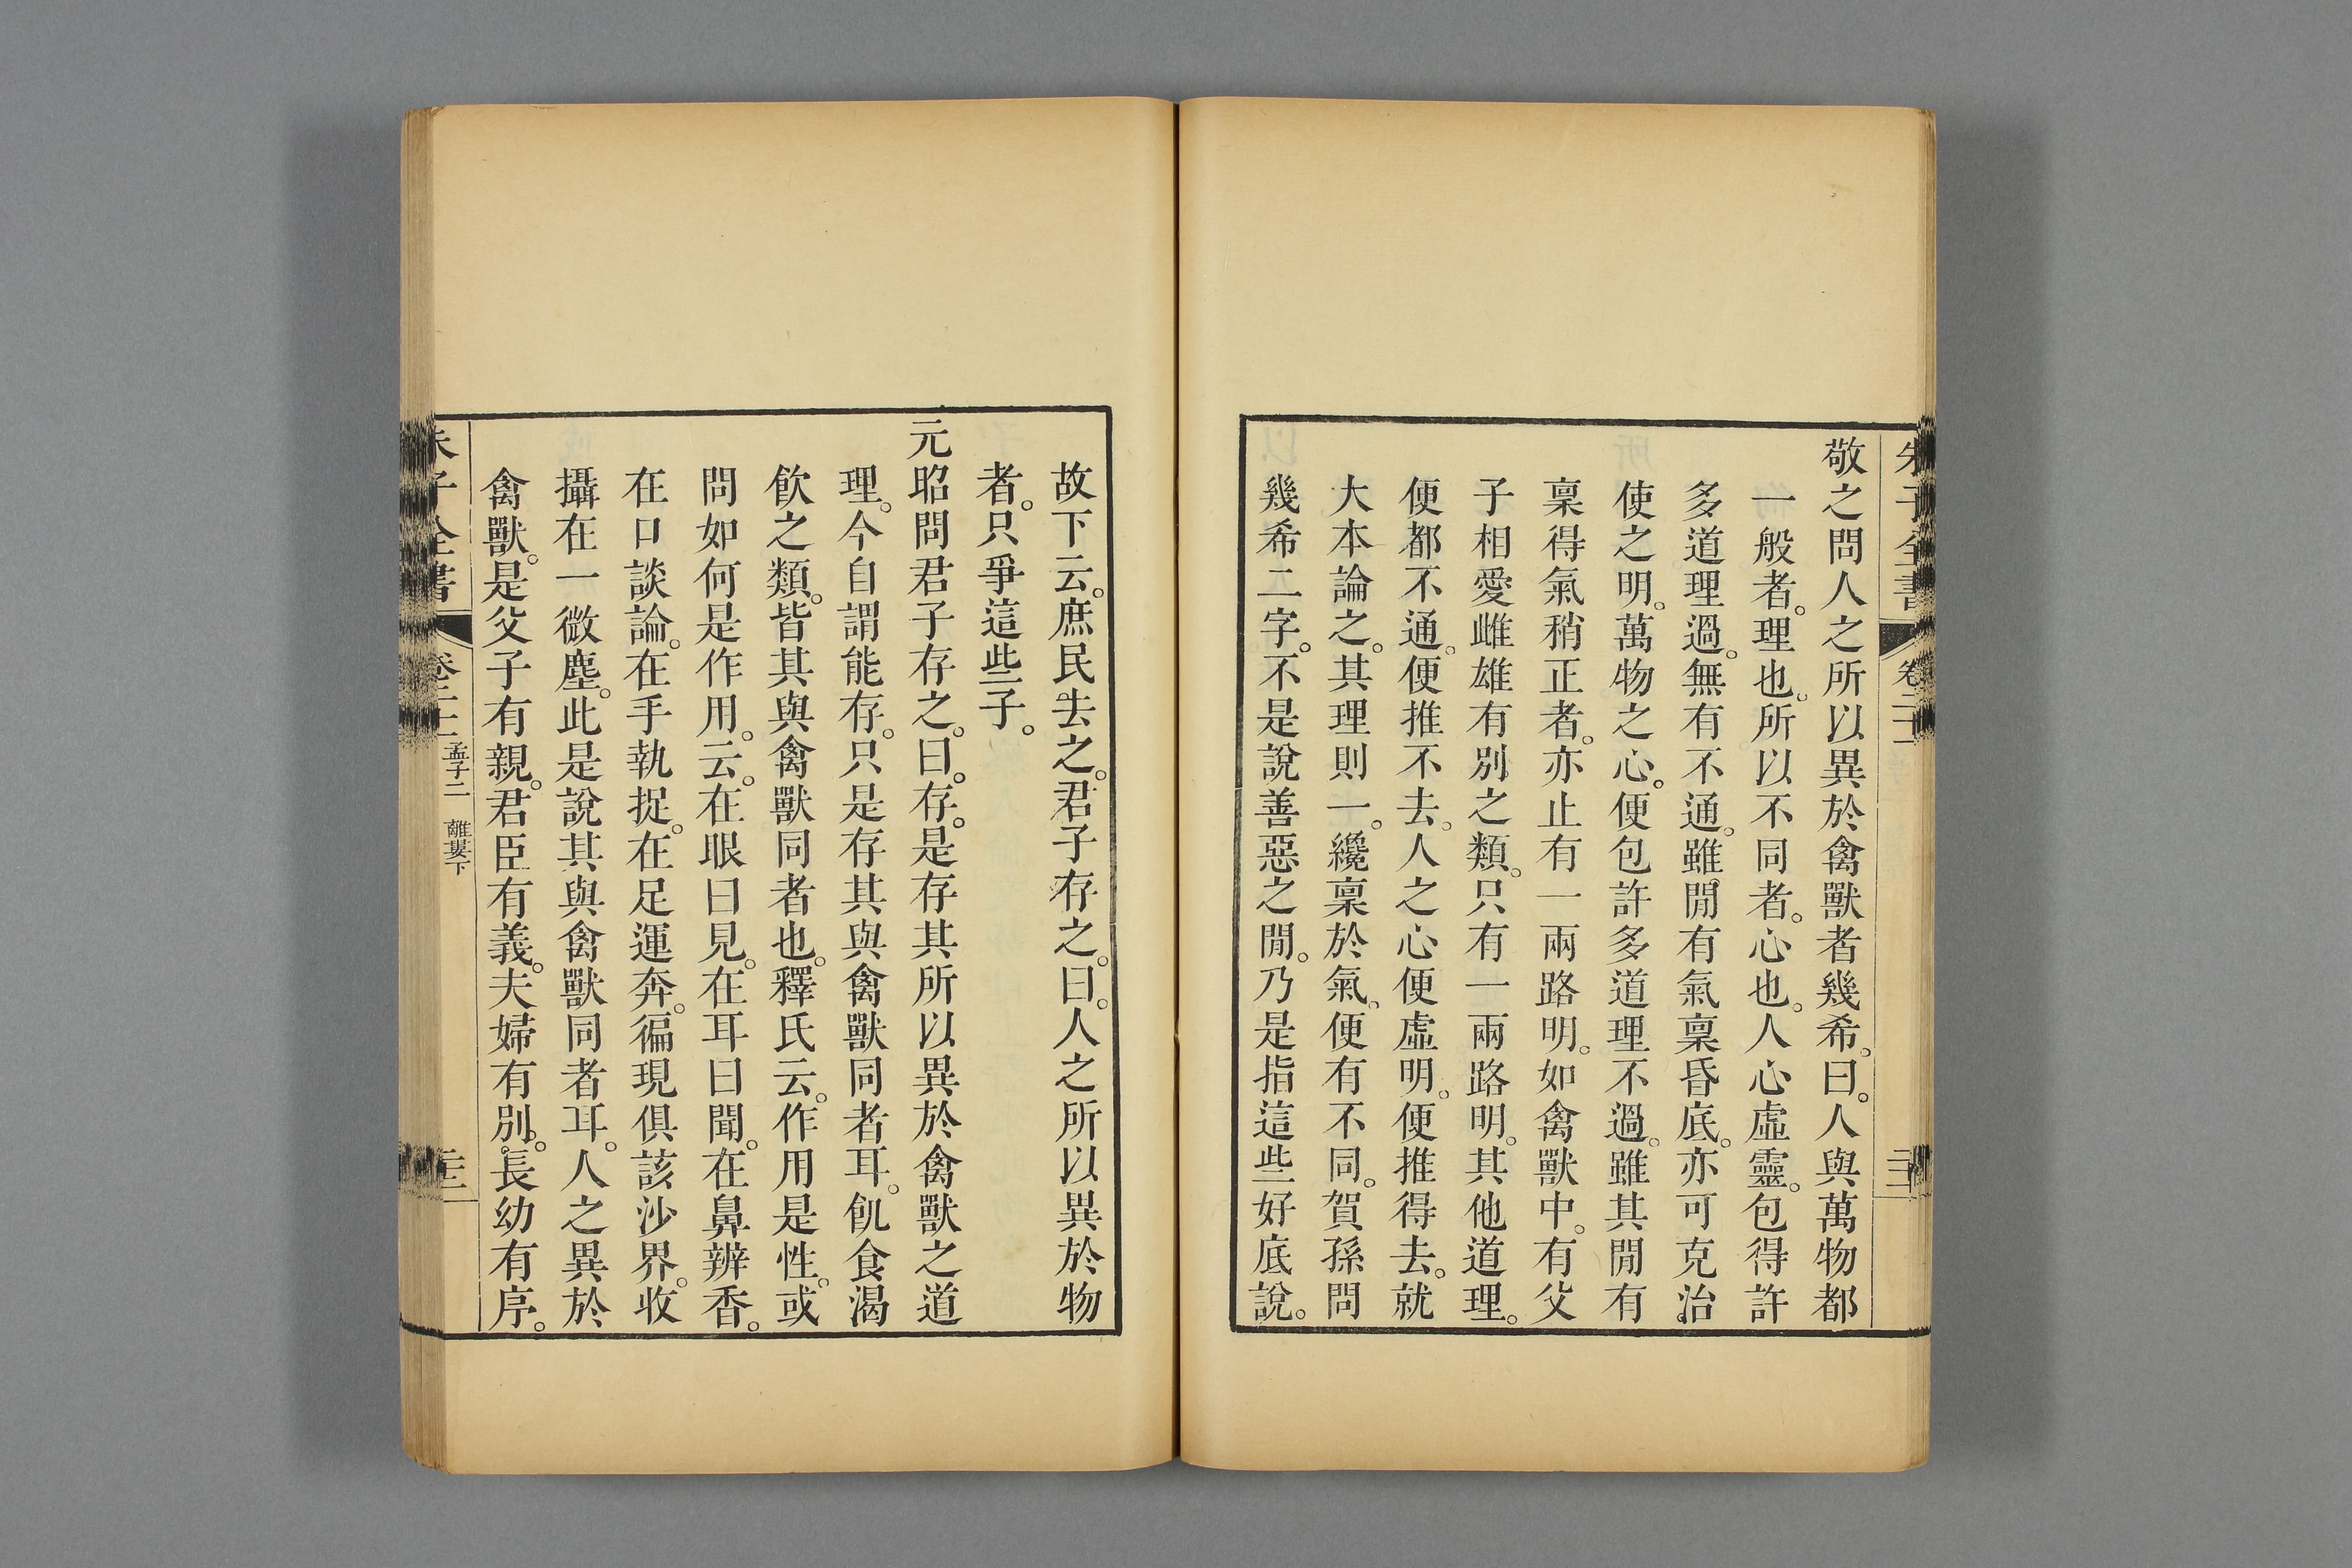 敬之問人之所以異於禽獸者幾希。曰。人與萬物都
一般者。理也。所以不同者。心也。人心虛靈。包得許
多道理過。無有不通。雖閒有氣稟昏底。亦可克治
使之明。萬物之心。便包許多道理不過。雖其閒有
稟得氣稍正者。亦止有一兩路明。如禽獸中。有父
子相愛雌雄有別之類。只有一兩路明。其他道理。
便都不通。便推不去。人之心便虛明。便推得去。就
大本論之。其理則一。纔稟於氣。便有不同。賀孫問
幾希二字。不是說善惡之閒。乃是指這些好底說。
故下云。庶民去之。君子存之。曰。人之所以異於物
者。只爭這些子。
元昭問君子存之。曰。存。是存其所以異於禽獸之道
理。今自謂能存。只是存其與禽獸同者耳。飢食渴
飮之類。皆其與禽獸同者也。釋氏云。作用是性。或
問如何是作用。云。在眼曰見。在耳曰聞。在鼻辨香。
在口談論。在手執捉。在足運奔。徧現俱該沙界。收
攝在一微塵。此是說其與禽獸同者耳。人之異於
禽獸。是父子有親。君臣有義。夫婦有別。長幼有序。
朱子全書
卷二十
孟子二 離婁下